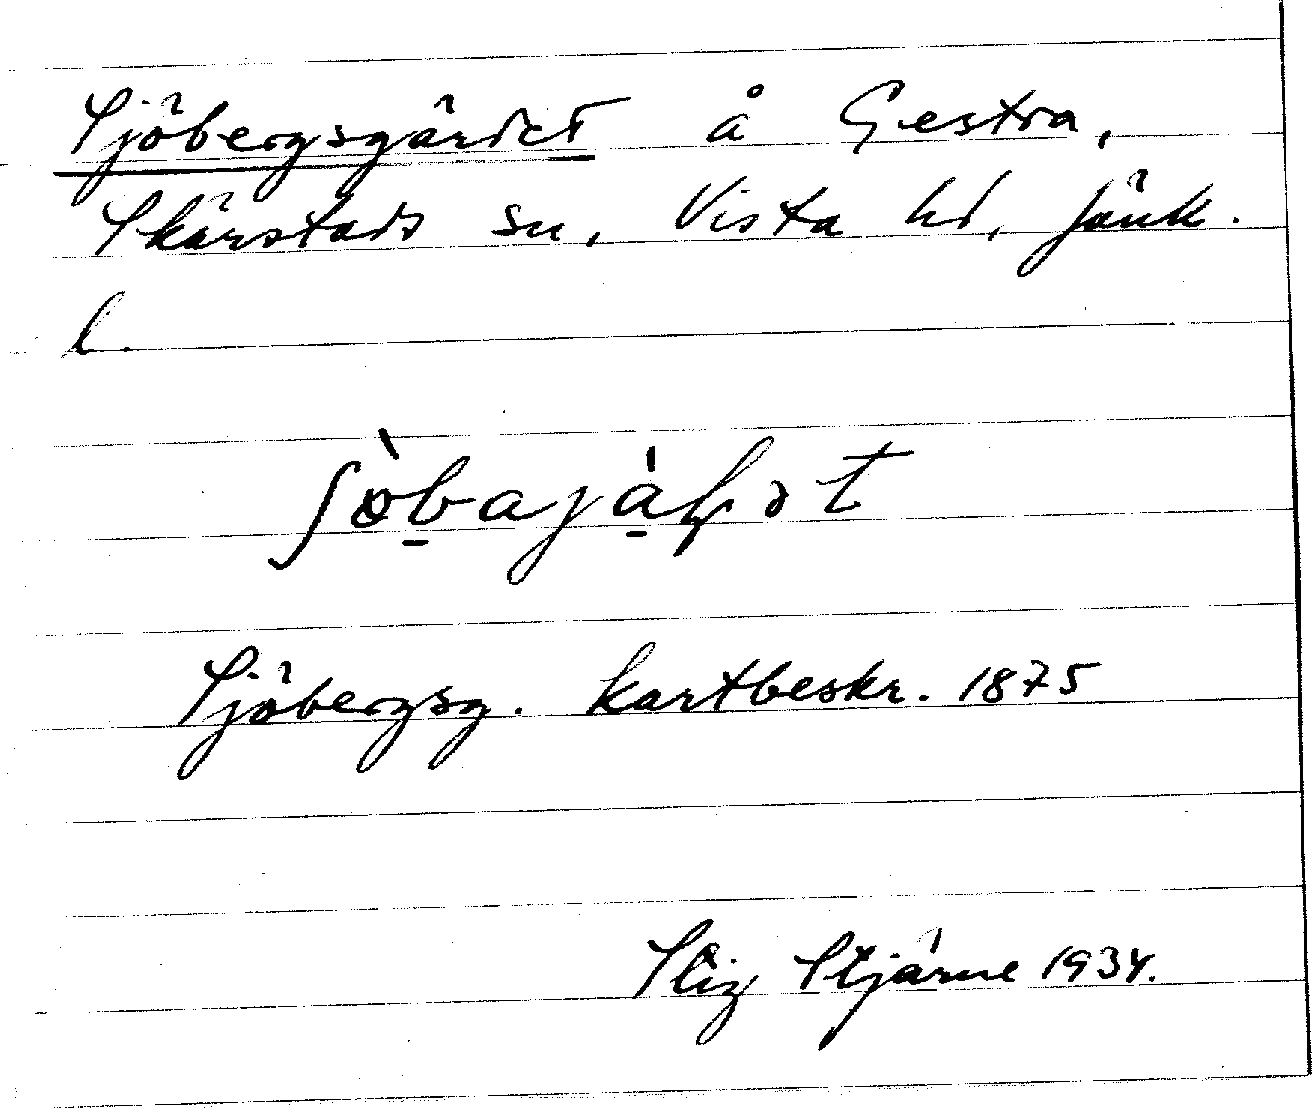 Sjöbergsgärdet å Gestra,
Skärstads sn, Vista hd, Jönk.
l.
Sjöbergsg. kartbeskr. 1875
Stig Stjärne 1934.